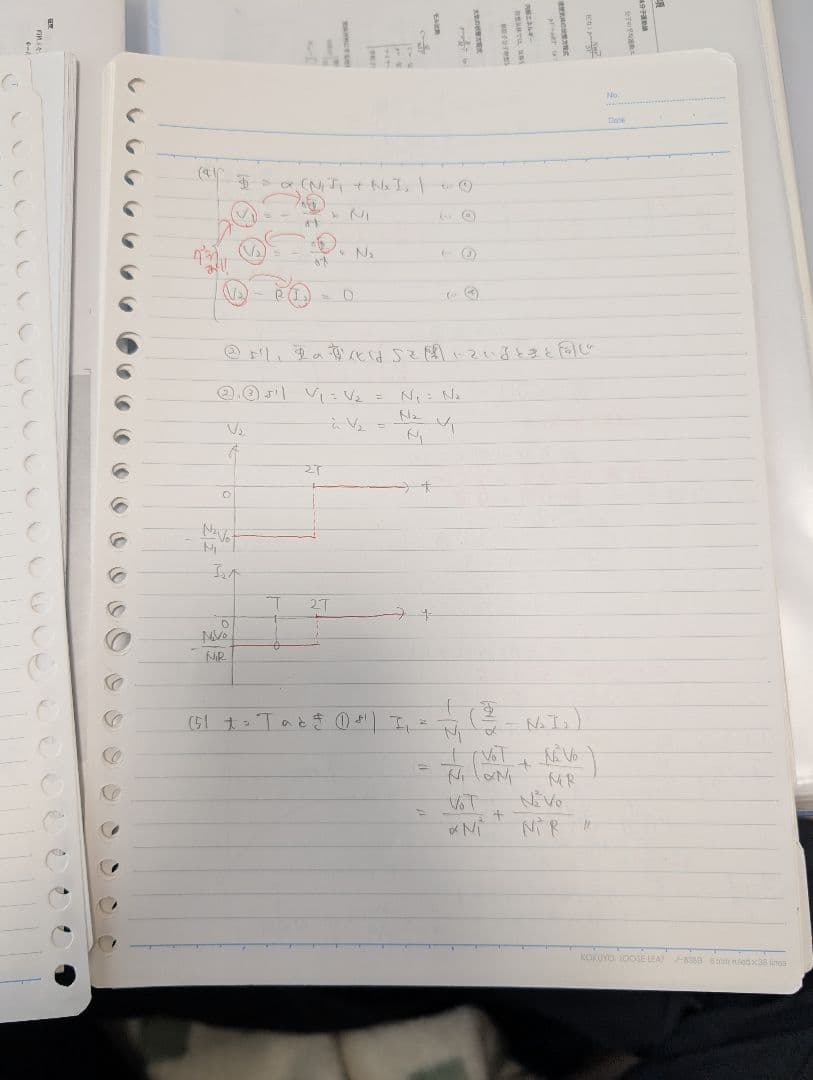 No.
Date
(4) Φ = α(N₁I₁ + N₂I₂) … ①
V₁ = - ΔΦ/Δt × N₁ … ②
V₂ = - ΔΦ/Δt × N₂ … ③
V₂ - RI₂ = 0 … ④
②より、Φの変化はSを開いているときと同じ
②,③より V₁ : V₂ = N₁ : N₂
∴ V₂ = N₂/N₁ V₁
V₂
2T
0
t
- N₂/N₁ V₀
I₂
T 2T
0
t
- N₂V₀/N₁R
(5) t = T のとき ①より I₁ = 1/N₁ (Φ/α - N₂I₂)
= 1/N₁ (V₀T/αN₁ + N₂²V₀/N₁R)
= V₀T/αN₁² + N₂²V₀/N₁²R //
KOKUYO LOOSE-LEAF ノ-836B 6 mm ruled×36 lines